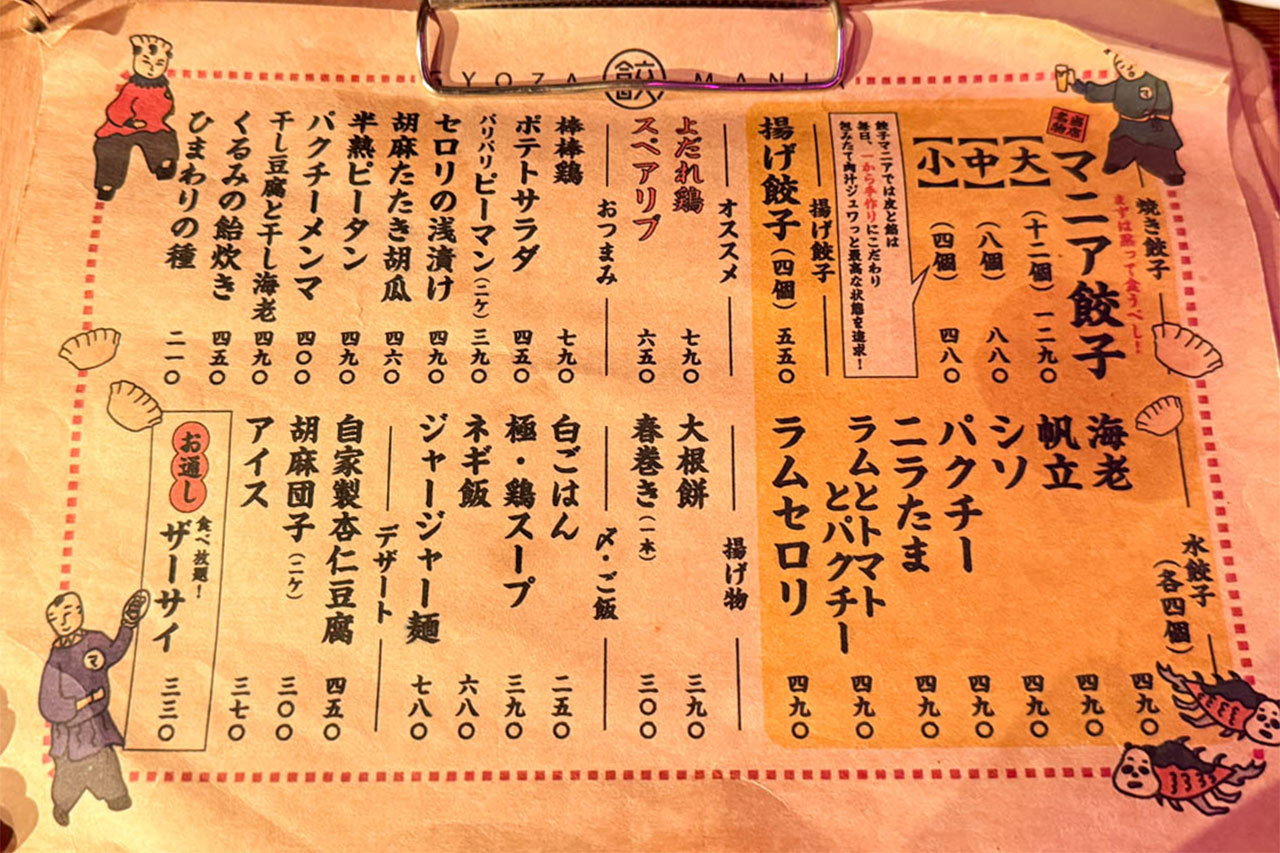 YOZA 餃 MANI
焼き餃子
まずは黙って食うべし！
当店名物
マニア餃子
【大】（十二個）一二九〇
【中】（八個）八八〇
【小】（四個）四八〇
餃子マニアでは皮と餡は
毎日、一から手作りにこだわり
包みたて肉汁ジュワっと最高な状態を追求！
揚げ餃子
揚げ餃子（四個）五五〇
水餃子（各四個）
海老 四九〇
帆立 四九〇
シソ 四九〇
パクチー 四九〇
ニラたま 四九〇
ラムとトマト
とパクチー 四九〇
ラムセロリ 四九〇
オススメ
よだれ鶏 七九〇
スペアリブ 六五〇
おつまみ
棒棒鶏 七九〇
ポテトサラダ 四五〇
パリパリピーマン（二ケ）三九〇
セロリの浅漬け 四九〇
胡麻たたき胡瓜 四六〇
半熟ピータン 四九〇
パクチーメンマ 四〇〇
干し豆腐と干し海老 四九〇
くるみの飴炊き 四五〇
ひまわりの種 二一〇
揚げ物
大根餅 三九〇
春巻き（一本）三〇〇
〆・ご飯
白ごはん 二五〇
極・鶏スープ 三九〇
ネギ飯 六八〇
ジャージャー麺 七八〇
デザート
自家製杏仁豆腐 四五〇
胡麻団子（二ケ）三〇〇
アイス 三七〇
お通し
食べ放題！
ザーサイ 三三〇
マ